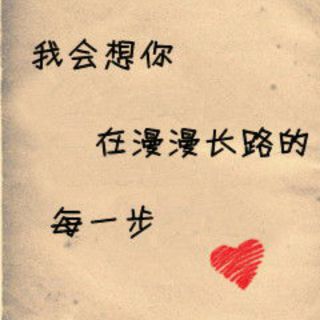 我会想你
在漫漫长路的
每一步